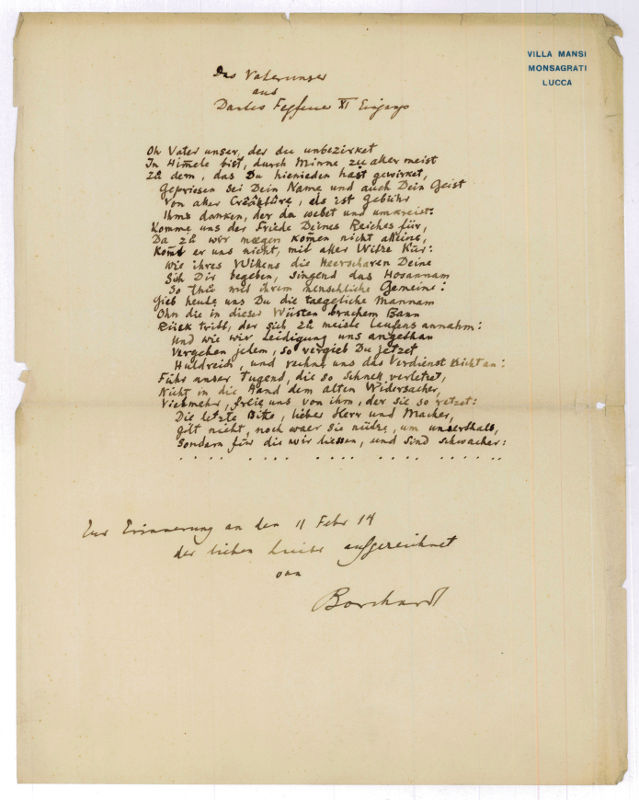 VILLA MANSI
MONSAGRATI
LUCCA
Das Vaterunser
aus
Dantes Fegfeuer XI Eingang
Oh Vater unser, der du unbezirket
In Himele bist, durch Minne, zu aller meist
Zu dem, das Du hienieden hast gewirket,
Gepriesen sei Dein Name und auch Dein Geist
Von aller Creatüre, als ist gebühr
Ihms danken, der da webet und umkreist:
Komme uns der Friede Deines Reiches für,
Da zu wir moegen komen nicht alleine,
Komt er uns nicht, mit aller Witze Kür:
Wie ihres Willens die Heerscharen Deine
Sich Dir begeben, singend das Hosannam
So thu mit ihrem menschliche Gemeine:
Gieb heute uns Du die taegeliche Mannam
Ohn die in dieser Wüsten brachem Bann
Rück tritt, der sich zu meiste laufens annahm:
Und wie wir Leidigung uns angethan
Vergeben jedem, so vergieb Du jetzet
Huldreich, und rechne uns das Verdienst nicht an:
Führ unser Tugend, die so schnell verletzet,
Nicht in die Hand dem alten Widersacher,
Vielmehr, freie uns von ihm, der sie so hetzet:
Die letzte Bitte, lieber Herr und Macher,
Gilt nicht, noch waer sie nütze, um unserthalb,
Sondern für die wir liessen, und sind schwacher:
Zur Erinnerung an den 11 Febr 14
der lieben aufgezeichnet
von
Borchardt